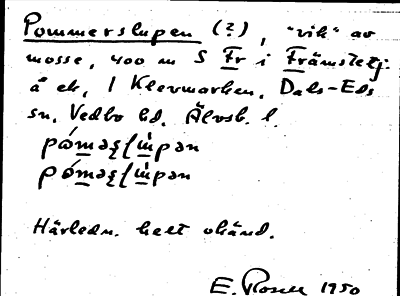 Pommerslupen (?), "vik" av
mosse, 400 m S Fr i Främstetj.
å ek, 1 Klevmarken, Dals-Eds
sn, Vedbo hd, Älvsb. l.
Härledn. helt okänd.
E. Rosell 1950